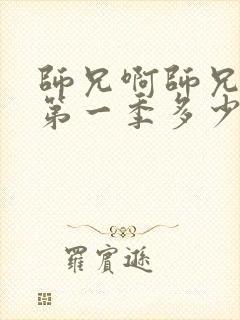 師兄啊師兄
第一季多少
羅賓遜